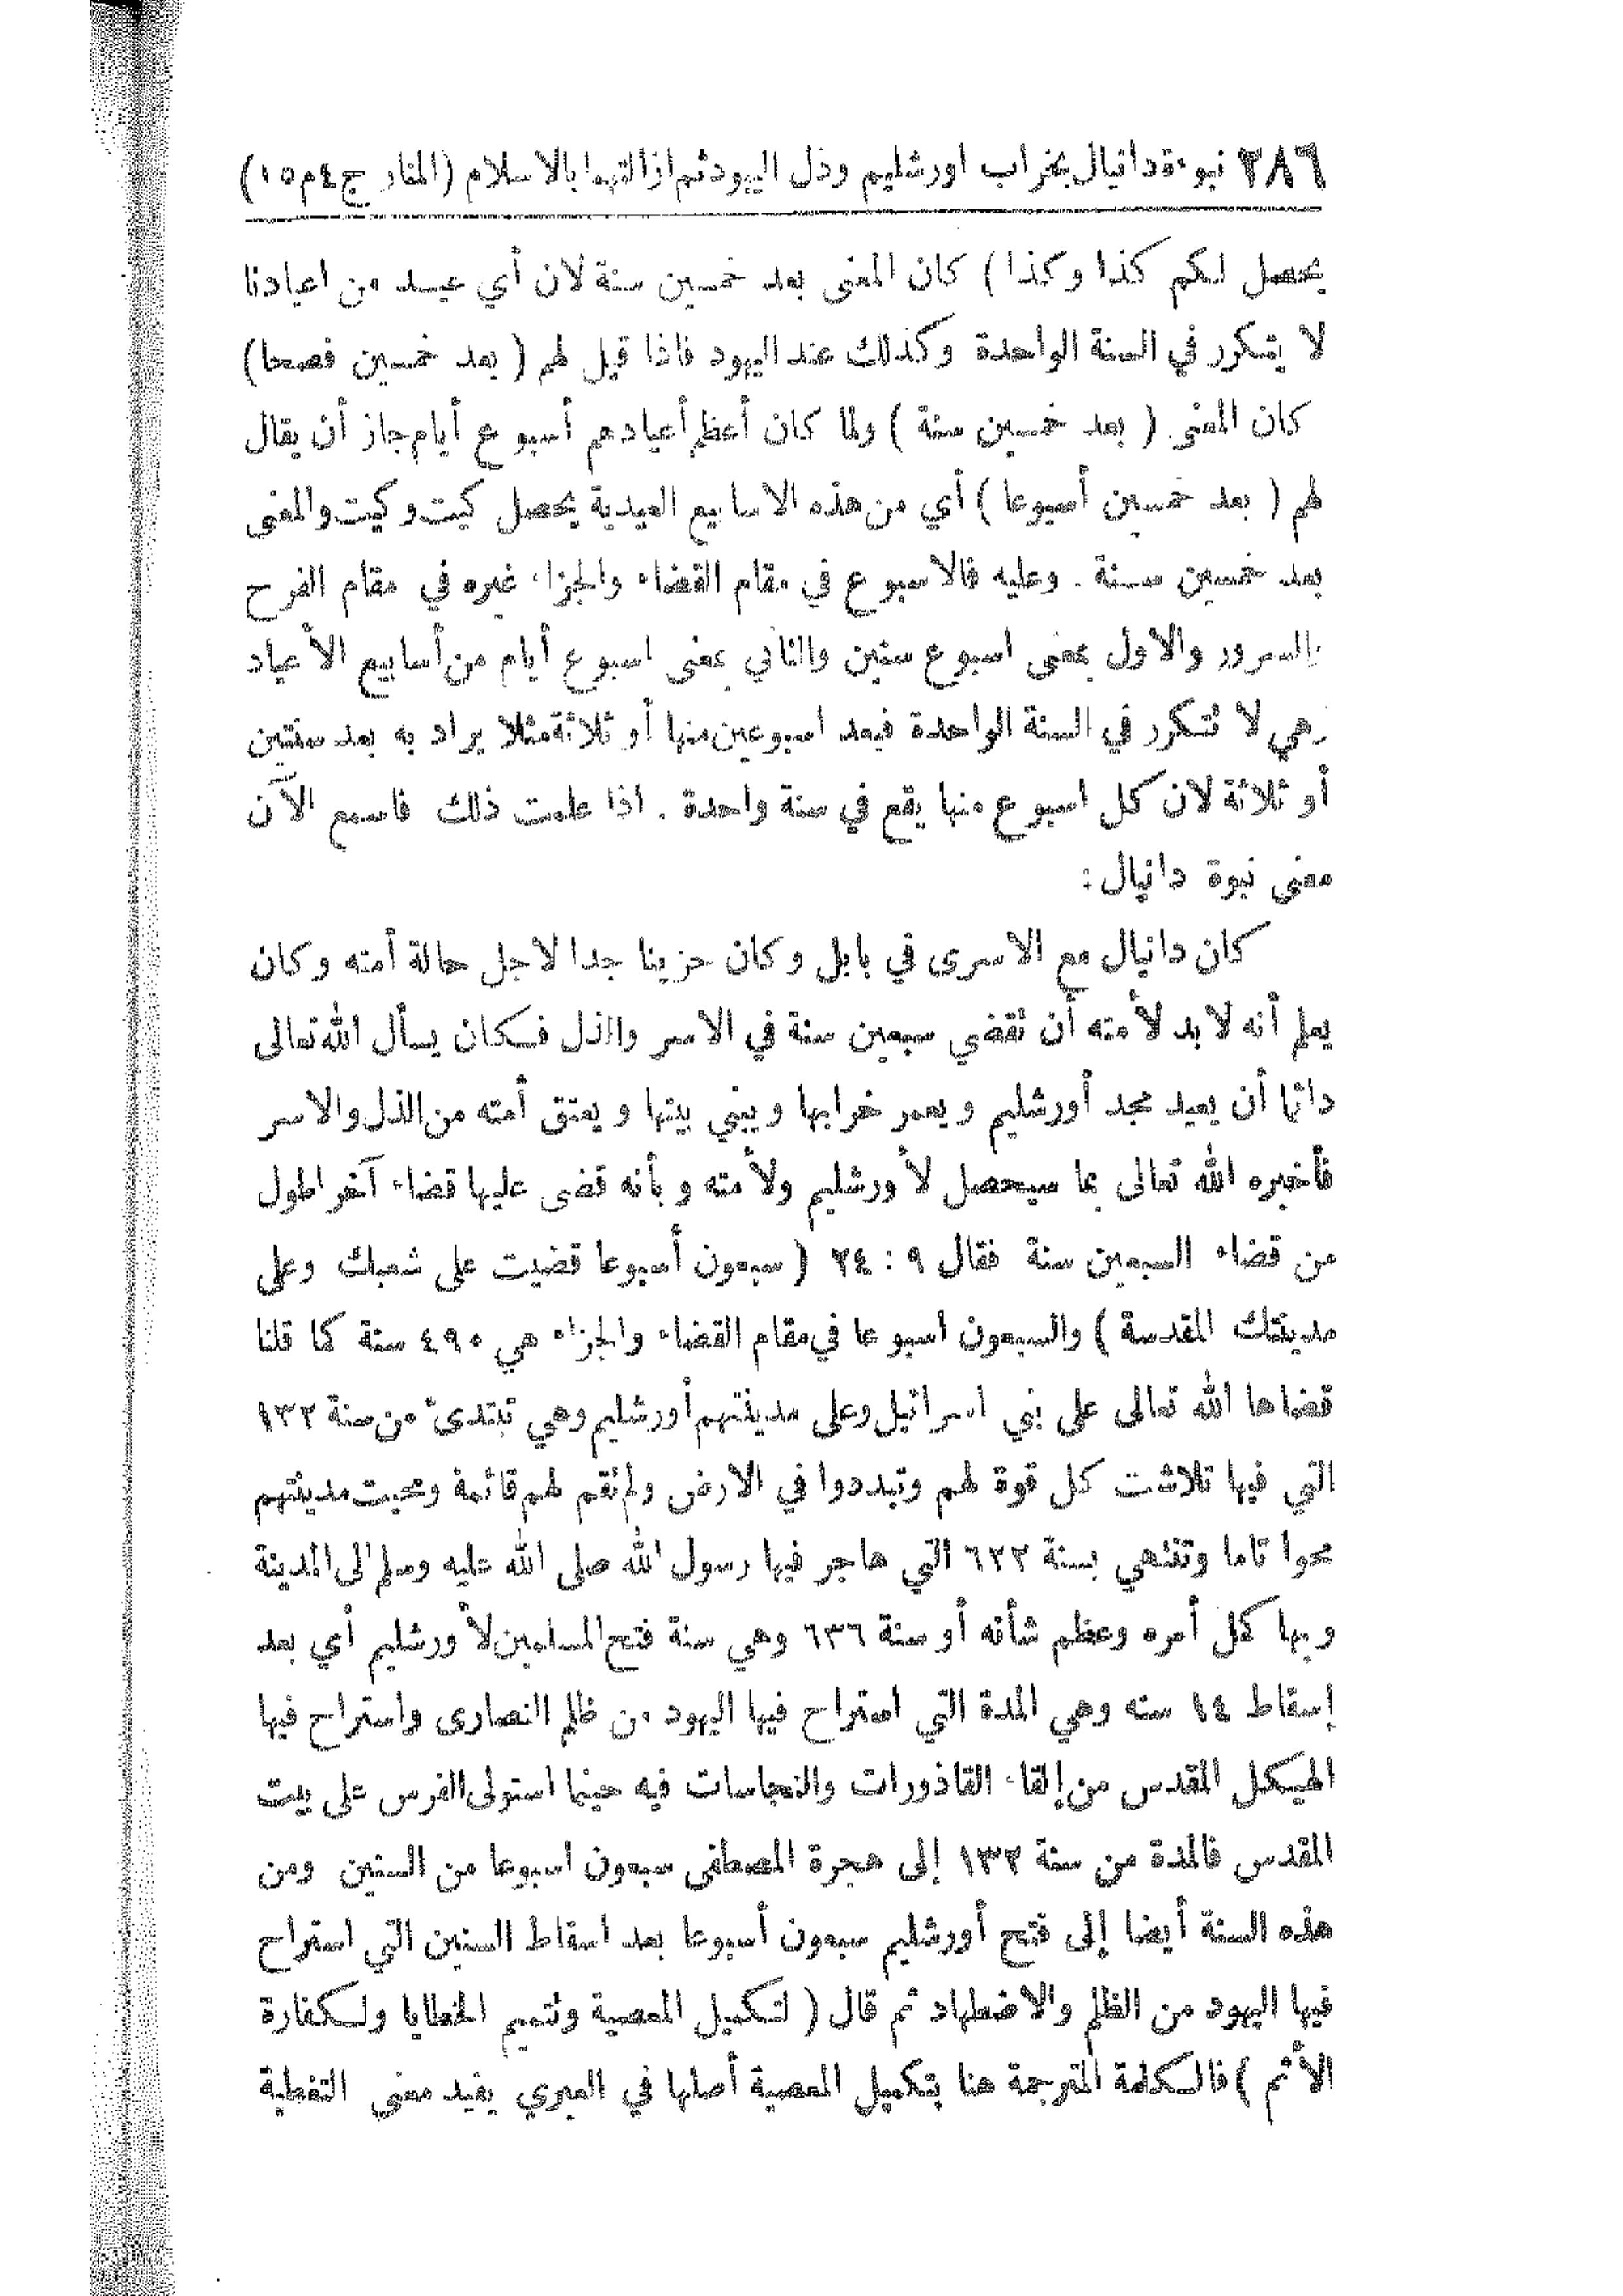 ٢٨٦ نبوءة دانيال بخراب اورشليم وذل اليهود ثم ازالتهما بالاسلام (المنار ج٤م١٥)
يحصل لكم كذا وكذا ) كان المعنى بعد خمسين سنة لان أي عيد من اعيادنا
لا يتكرر في السنة الواحدة وكذلك عند اليهود فاذا قيل لهم ( بعد خمسين فصحا)
كان المعنى ( بعد خمسين سنة ) ولما كان أعظم أعيادهم أسبوع أيام جاز أن يقال
لهم ( بعد خمسين أسبوعا ) أي من هذه الاسابيع العيدية يحصل كيت وكيت والمعنى
بعد خمسين سنة . وعليه فالاسبوع في مقام القضاء والجزاء غيره في مقام الفرح
والسرور والاول بمعنى اسبوع سنين والثاني بمعنى اسبوع أيام من أسابيع الأعياد
وهي لا تتكرر في السنة الواحدة فبعد اسبوعين منها أو ثلاثة مثلا يراد به بعد سنتين
أو ثلاثة لان كل اسبوع منها يقع في سنة واحدة . اذا علمت ذلك فاسمع الآن
معنى نبوة دانيال :
كان دانيال مع الاسرى في بابل وكان حزينا جدا لاجل حالة أمته وكان
يعلم أنه لا بد لأمته أن تقضي سبعين سنة في الاسر والذل فكان يسأل الله تعالى
دائما أن يعيد مجد أورشليم ويعمر خرابها ويبني بيتها ويعتق أمته من الذل والاسر
فأخبره الله تعالى بما سيحصل لأورشليم ولأمته وبأنه قضى عليها قضاء آخر اطول
من قضاء السبعين سنة فقال ٩ : ٢٤ ( سبعون أسبوعا قضيت على شعبك وعلى
مدينتك المقدسة ) والسبعون اسبوعا في مقام القضاء والجزاء هي ٤٩٠ سنة كما قلنا
قضاها الله تعالى على بني اسرائيل وعلى مدينتهم أورشليم وهي تبتدئ من سنة ١٣٢
التي فيها تلاشت كل قوة لهم وتبددوا في الارض ولم تقم لهم قائمة ومحيت مدينتهم
محوا تاما وتنتهي بسنة ٦٢٢ التي هاجر فيها رسول الله صلى الله عليه وسلم الى المدينة
وبها كمل أمره وعظم شأنه أو سنة ٦٣٦ وهي سنة فتح المسلمين لأورشليم أي بعد
إسقاط ١٤ سنه وهي المدة التي استراح فيها اليهود من ظلم النصارى واستراح فيها
الهيكل المقدس من إلقاء القاذورات والنجاسات فيه حينما استولى الفرس على بيت
المقدس فالمدة من سنة ١٣٢ إلى هجرة المصطفى سبعون اسبوعا من السنين ومن
هذه السنة أيضا إلى فتح أورشليم سبعون أسبوعا بعد اسقاط السنين التي استراح
فيها اليهود من الظلم والاضطهاد ثم قال ( لتكميل المعصية وتتميم الخطايا ولكفارة
الأثم ) فالكلمة المترجمة هنا بتكميل المعصية أصلها في العبري يفيد معنى التغطية